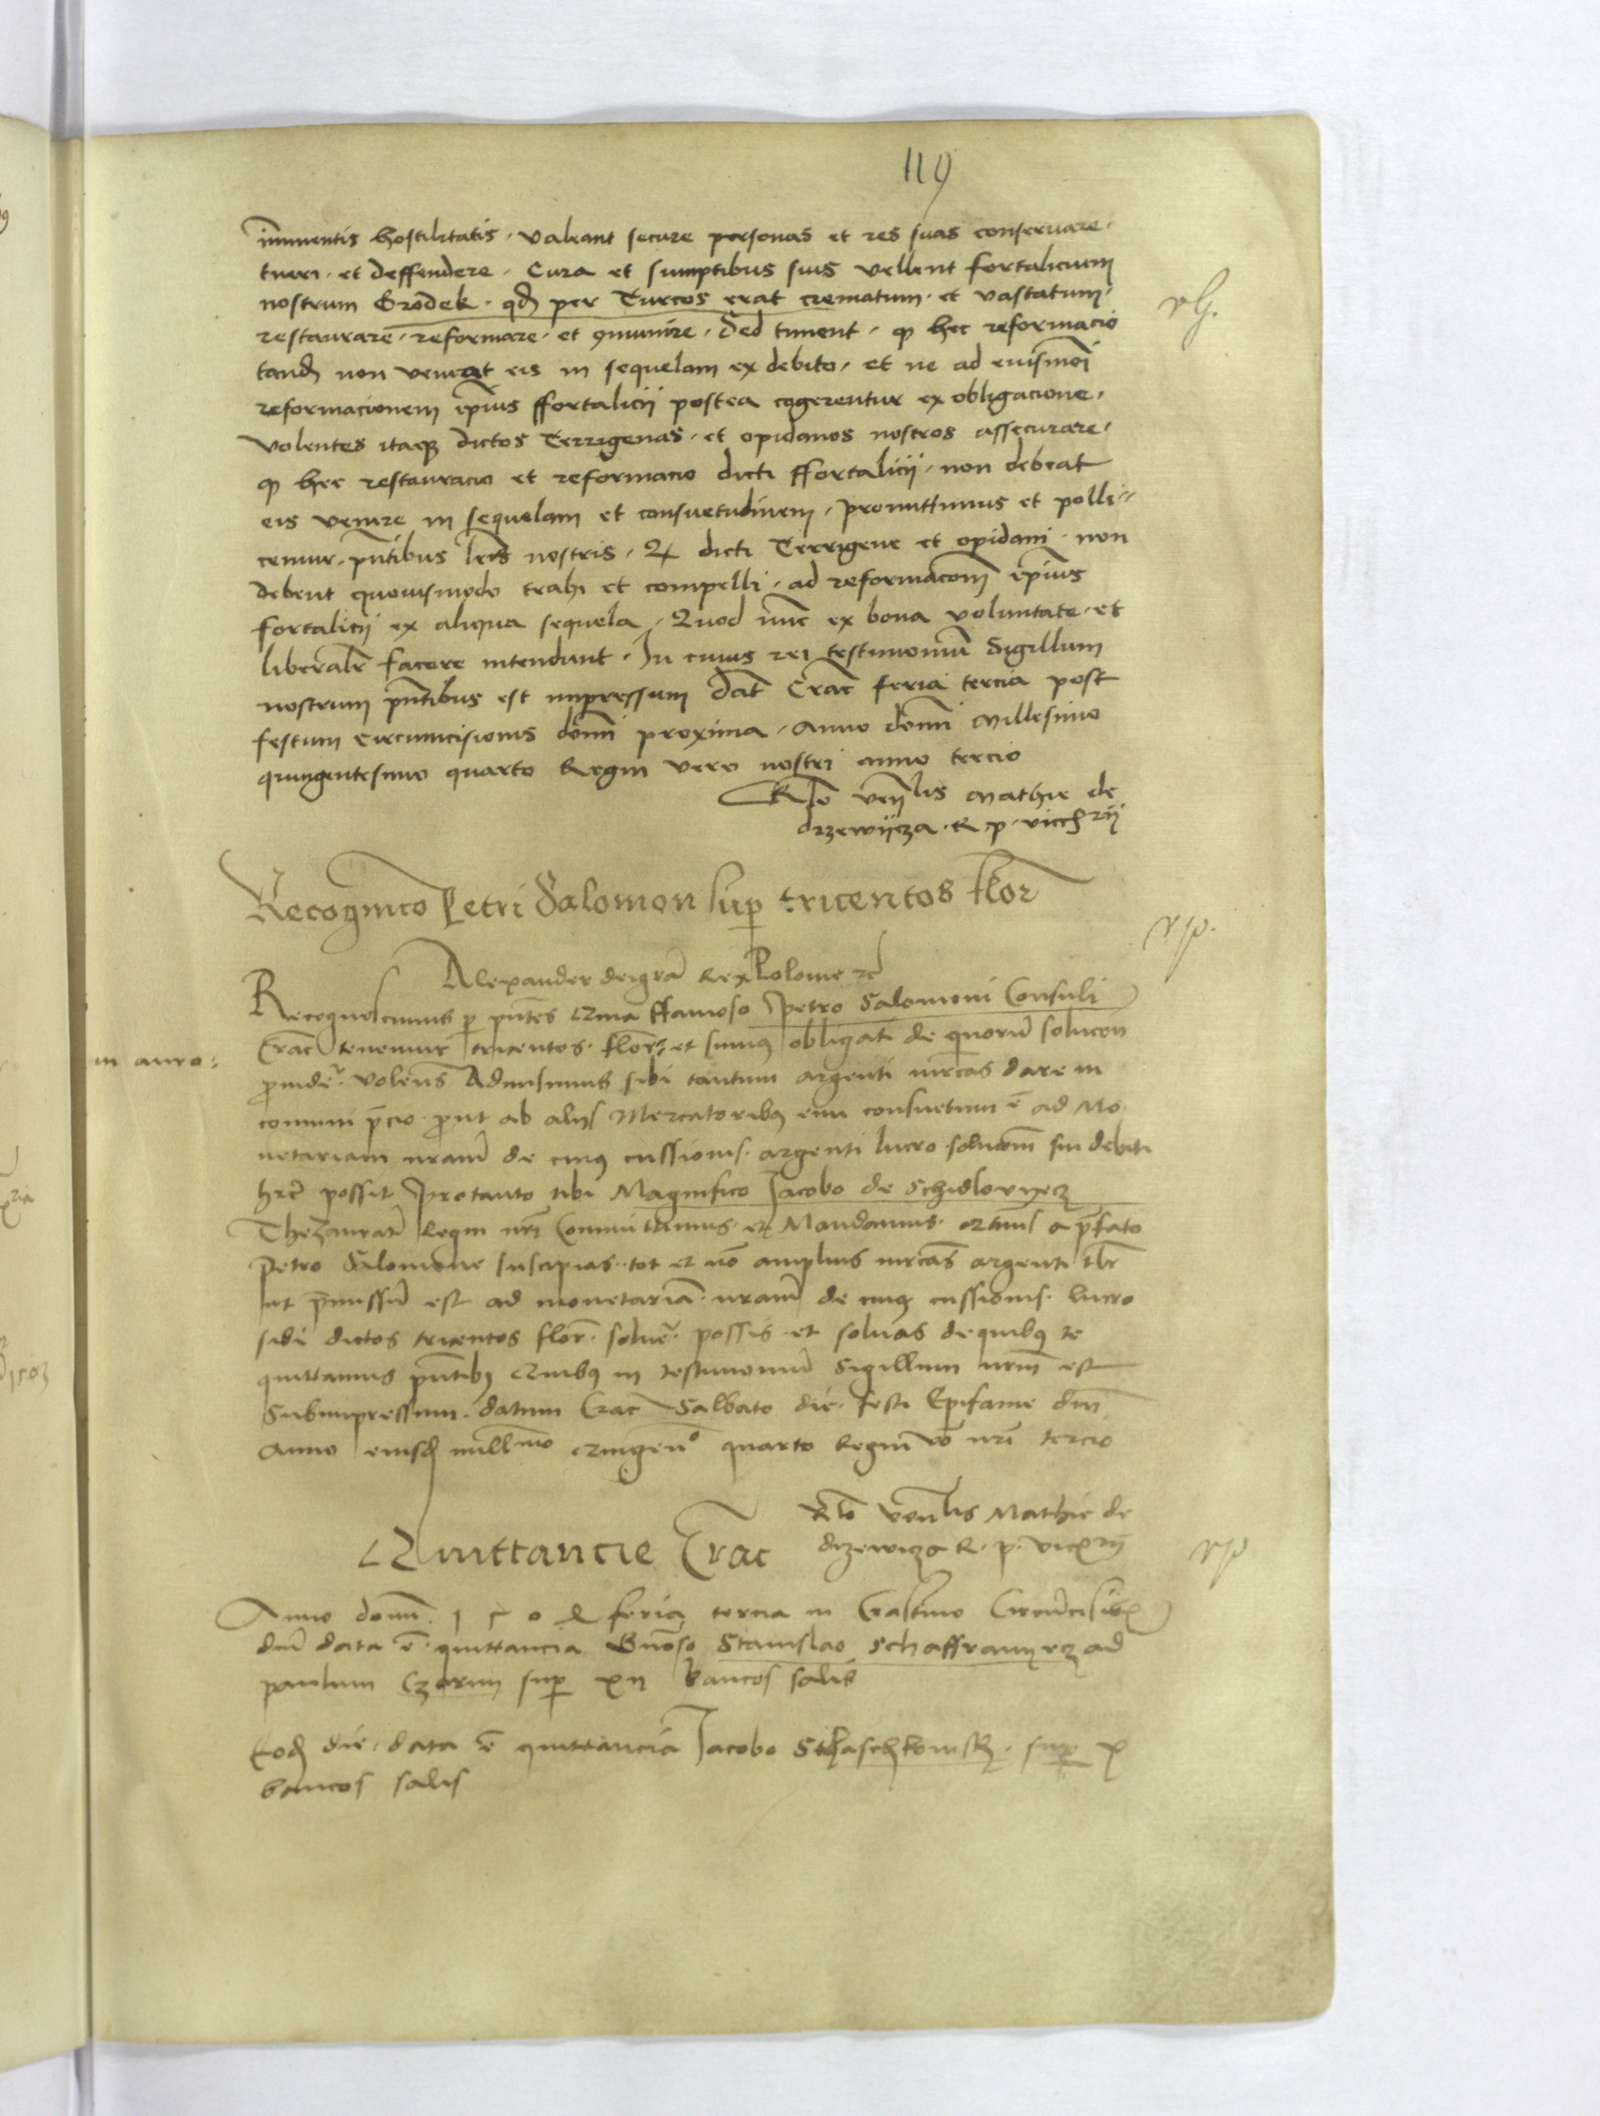 119
im̄mentis hostilitatis · valeant secure personas et res suas conseruare ·
tueri · et deffendere · Cura et sumptibus suis vellent fortalicium
nostrum Grodek · qd̄ per Turcos erat crematum · et vastatum ·
restaurare · reformare · et ꝯmunire · Sed timent · ꝙ hec reformacio
tand̄ non veniat eis in sequelam ex debito · et ne ad euismōi
reformacionem ip̄ius ffortalicii postea cogerentur ex obligacione ·
volentes itaqꝫ dictos Terrigenas · et opidanos nostros assecurare ·
ꝙ hec restauracio et reformacio dicti ffortalicii · non debeat
eis venire in sequelam et consuetudinem · promittimus et polli-
cemur · pn̄tibus lr̄is nostris · Qꝫ dicti Terrigene et opidani · non
debent quouismodo trahi et compelli · ad reformacōm ip̄ius
fortalicii ex aliqua sequela · Quod nūc ex bona voluntate · et
liberalr̄ facere intendunt · In cuius rei testimoniū Sigillum
nostrum pn̄tibus est impressum Dat̄ Crac̄ feria tercia post
festum circumcisionis dōni proxima · Anno dōni Millesimo
quingentesimo quarto Regni vero nostri anno tercio
Rlo ven̄lis Mathie de
drzewijcza · R · p · vicecārii
Recognicio Petri Salomon sup̱ tricentos flor̄
rp.
Alexander dei gra̅ Rex Polonie ꝛc̄
Recognoscimus ꝑ pn̄tes Quia ffamoso Petro Salomoni Consuli
Crac̄ tenemur tricentos · flor̄ · et sumus obligati de quorū solucon
in auro:
prouider̄ · volens̄ Admisimus sibi tantum argenti mr̄cas dare in
comuni p̄cio · prout ab aliis Mercatoribꝫ emi consuetum ē ad Mo
netariam nr̄am de cuiꝫ cussionis · argenti lucro · solucōm sui debiti
hr̄e possit Protanto tibi Magnifico Jacobo de Schidlovyecz
Thezaurar̄ Regni nr̄i Committimus · et Mandamus · qtnus a p̄fato
Petro Salomone suscipias · tot et nō amplius mr̄cas argenti
ut p̄missū est ad monetariā nr̄am de cuiꝫ cussionis · lucro
sibi dictos tricentos flor̄ · soluer̄ · possis · et soluas de quibꝫ te
quittamus pn̄tibꝫ Quibꝫ in testimoniū Sigillum nr̄m est
Subimpressum · datum Crac̄ Sabbato die · festi Epifanie dn̄i
Anno eiusd̄ mill̄mo quingen̄o quarto Regni v̄o nr̄i tercio
Rlo ven̄lis Mathie de
drzewicza R · p · vicecārii
Quittancie Crac̄
rp
Anno domī 1504 feria tercia in Crastino Circūcisiōis
dn̄i data ē quittancia Gn̄oso Stanislao Schaffranyecz ad
paulum Czarny sup̱ xii bancos salis
Eod̄ die · data ē quittancia Jacobo · sup̱ x
bancos salis